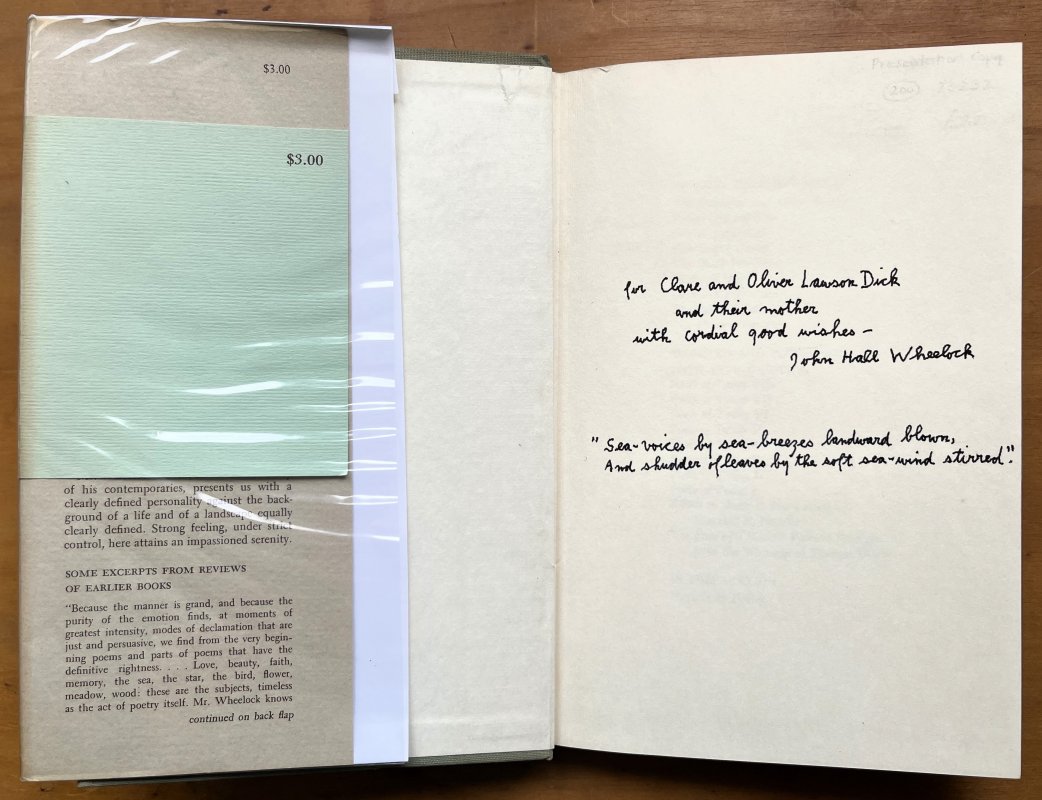 $3.00
$3.00
of his contemporaries, presents us with a
clearly defined personality against the back-
ground of a life and of a landscape equally
clearly defined. Strong feeling, under strict
control, here attains an impassioned serenity.
SOME EXCERPTS FROM REVIEWS
OF EARLIER BOOKS
"Because the manner is grand, and because the
purity of the emotion finds, at moments of
greatest intensity, modes of declamation that are
just and persuasive, we find from the very begin-
ning poems and parts of poems that have the
definitive rightness. . . . Love, beauty, faith,
memory, the sea, the star, the bird, flower,
meadow, wood: these are the subjects, timeless
as the act of poetry itself. Mr. Wheelock knows
continued on back flap
Presentation Copy
(200)
for Clare and Oliver Lawson Dick
and their mother
with cordial good wishes –
John Hall Wheelock
"Sea-voices by sea-breezes landward blown,
And shudder of leaves by the soft sea-wind stirred".